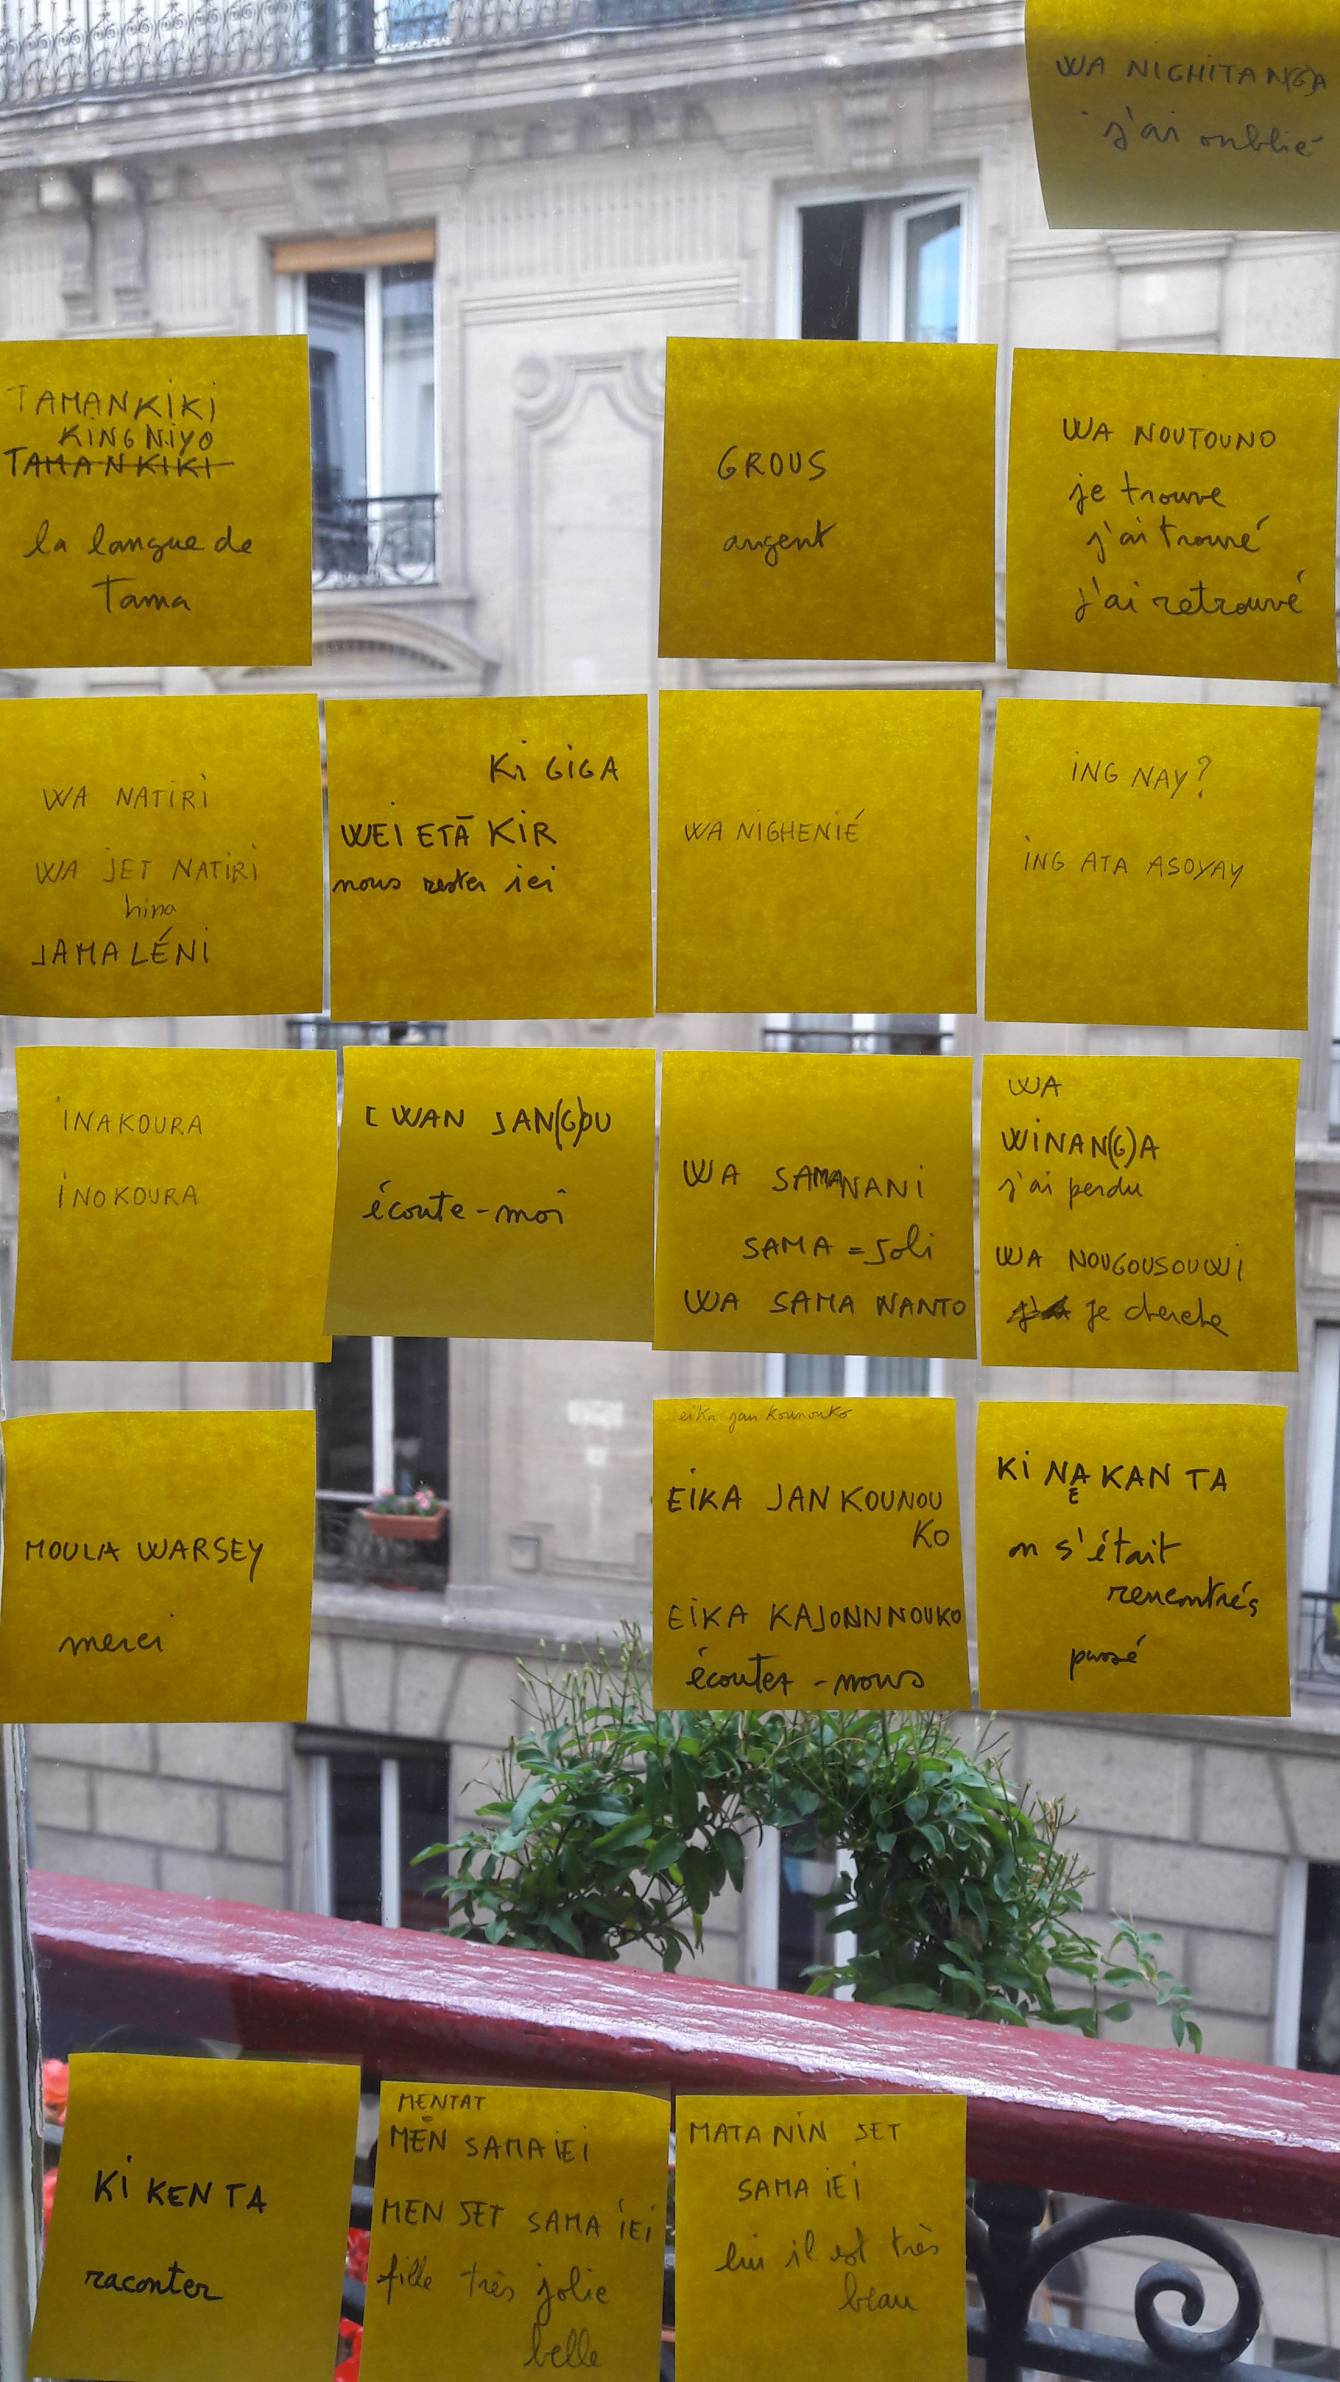 WA NIGHITAN(G)A
j'ai oublié
TAMANKIKI
KINGNIYO
TAMANKIKI
la langue de
Tama
GROUS
argent
WA NOUTOUNO
je trouve
j'ai trouvé
j'ai retrouvé
WA NATIRI
WA JET NATIRI
hina
JAMALÉNI
KI GIGA
WEI ETĀ KIR
nous rester ici
WA NIGHENIÉ
ING NAY?
ING ATA ASOYAY
INAKOURA
INOKOURA
WAN JAN(G)OU
écoute-moi
WA SAMANANI
SAMA = Joli
WA SAMA NANTO
WA
WINAN(G)A
j'ai perdu
WA NOUGOUSOUWI
je cherche
MOULA WARSEY
merci
eika jan kounouko
EIKA JAN KOUNOU
KO
EIKA KAJONNNOUKO
écoutez-nous
KI NAKAN TA
E
on s'était
rencontrés
passé
KI KEN TA
raconter
MENTAT
MEN SAMA IEI
MEN JET SAMA IEI
fille très jolie
belle
MATA NIN JET
SAMA IEI
lui il est très
beau